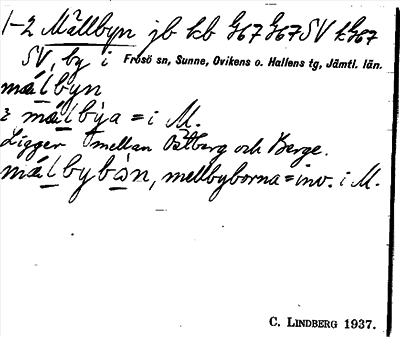 1-2 Mällbyn jb kb G67 G67 SV k G67
SV, by i Frösö sn, Sunne, Ovikens o. Hallens tg, Jämtl. län.
málbyn
2 málbýa = i M.
Ligger mellan Östberg och Berge.
málbybón, mellbyborna = inv. i M.
C. LINDBERG 1937.